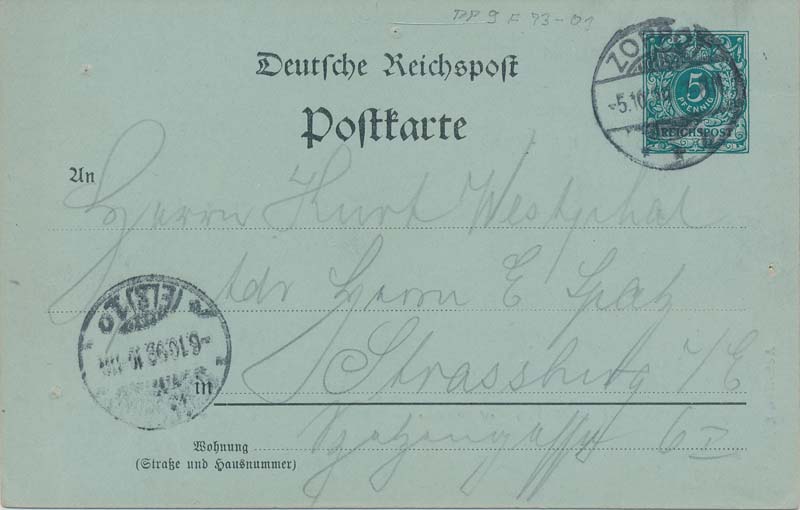 PP 9 F 73-01
Deutsche Reichspost
Postkarte
5
PFENNIG
REICHSPOST
-5.10.
An
Herrn Kurt Westphal
Adr Herrn E Spatz
(ELS) 10
-6.10.92
in Strassburg i/E
Wohnung
(Straße und Hausnummer)
6 I